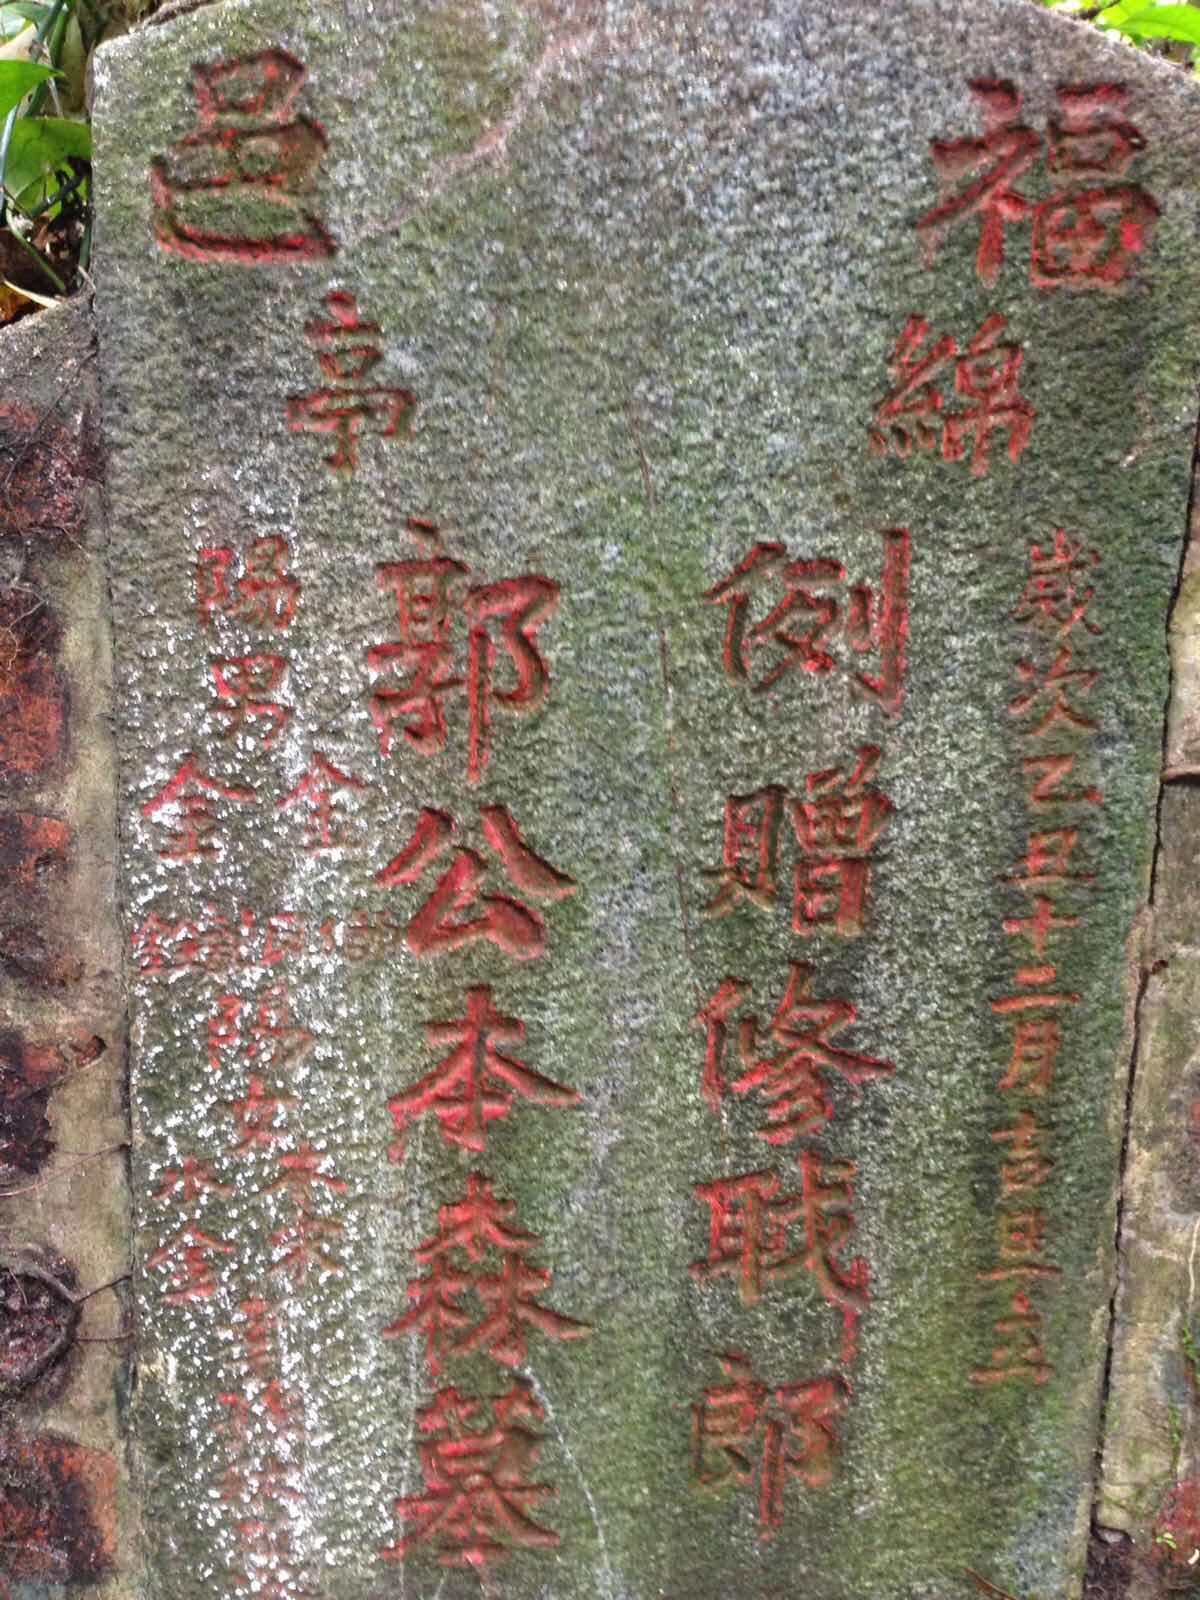 福邑
綿亭
歲次乙丑十二月吉旦立
例贈修職郎
郭公本森墓
陽男
金
金
陽女
水金